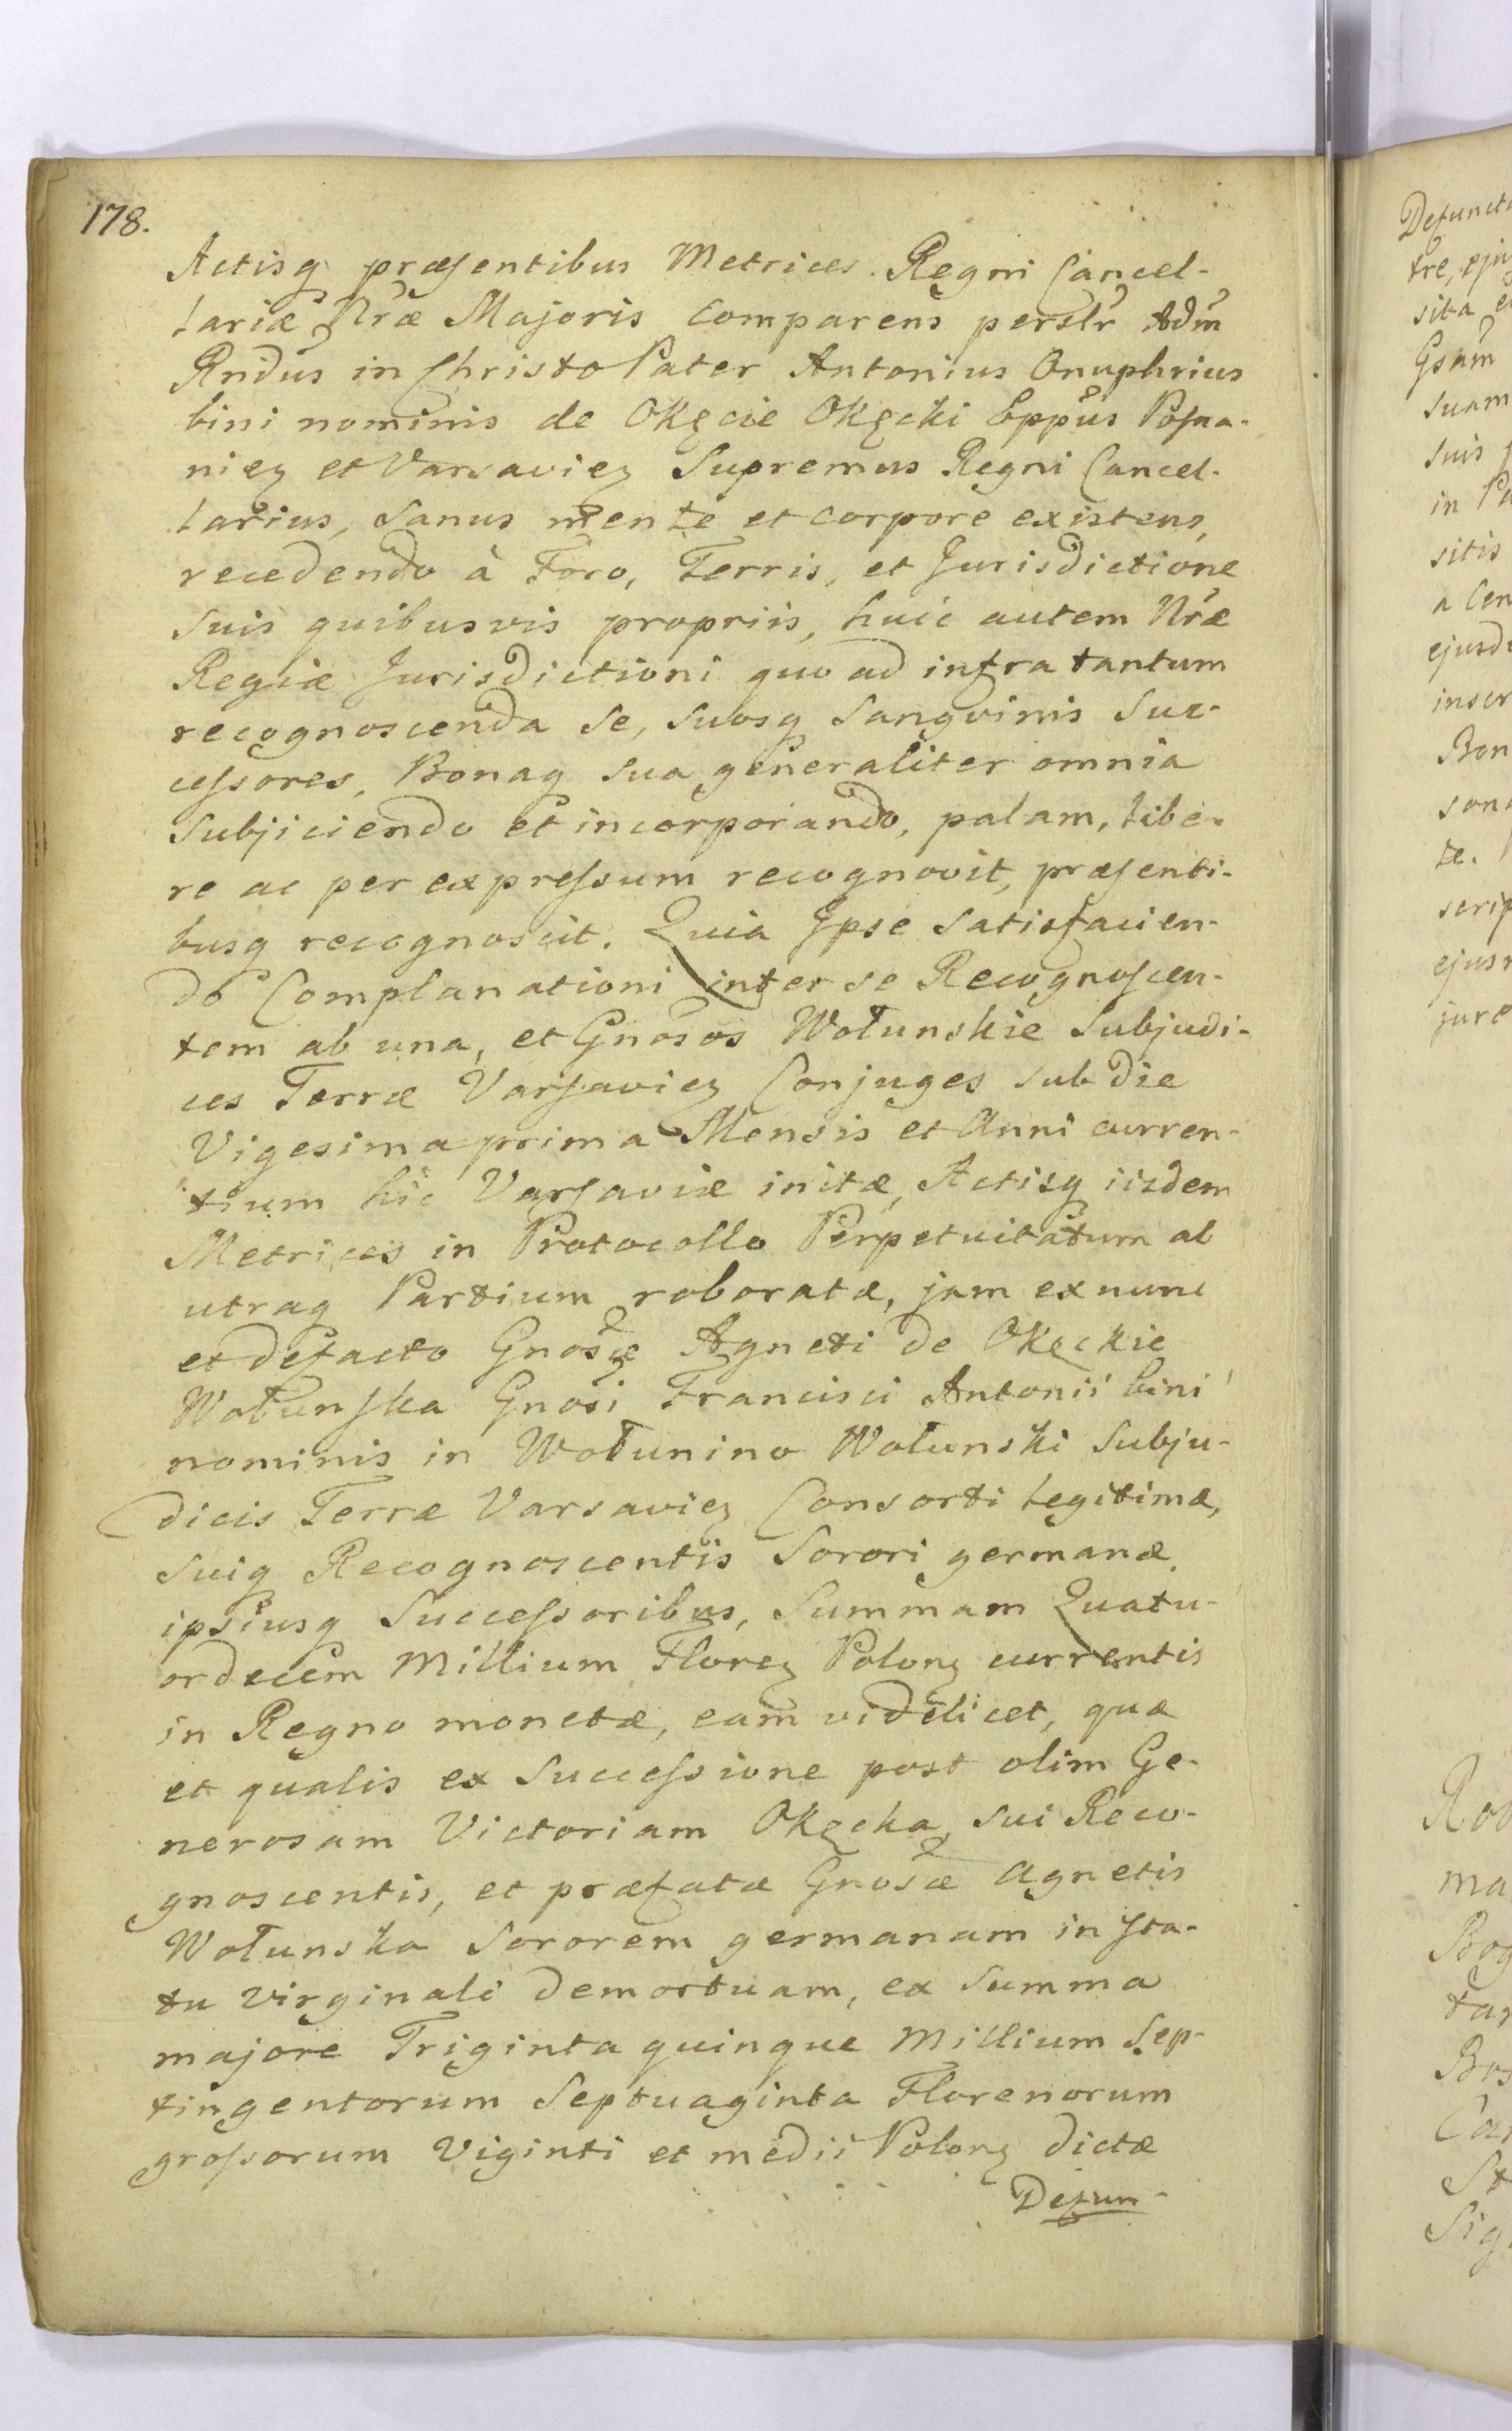 178.
Actisq præsentibus Metrices Regni Cancel-
lariæ Nræ Majoris Comparens perslr Adm
Rndus in Christo Pater Antonius Onuphrius
bini nominis de Okęcie Okęcki Eppus Posna-
nieȝ et Varsavieȝ Supremus Regni Cancel-
larius, sanus mente et corpore existens,
recedendo à Foro, Terris, et Jurisdictione
suis quibusvis propriis, huic autem Nræ
Regiæ Jurisdictioni quo ad infra tantum
recognoscenda se, suosq sangvinis suc-
cessores, Bonaq sua generaliter omnia
subjiciendo et incorporando, palam, libe-
re ac per expressum recognovit, præsenti-
busq recognoscit. Quia Ipse satisfacien-
do Complanationi inter se Recognoscen-
tem ab una, et Gnosos Wołunskie Subjudi-
ces Terræ Varsavieȝ Conjuges sub die
Vigesima prima Mensis et Anni curren-
tium hic Varsaviæ initæ, Actisq iisdem
Metrices in Protocollo Perpetuitatum ab
utraq Partium roboratæ, jam ex nunc
et defacto Gnosæ Agneti de Okęckie
Wołunska Gnosi Francisci Antonii bini
nominis in Wołunino Wołunski Subju-
dicis Terræ Varsavieȝ Consorti legitimæ,
suiq Recognoscentis Sorori germanæ,
ipsiusq Successoribus, Summam Quatu-
ordecem Millium Floreȝ Polonȝ currentis
in Regno monetæ, eam videlicet, quæ
et qualis ex Successione post olim Ge-
nerosam Victoriam Okęcka, sui Reco-
gnoscentis, et præfatæ Gnosæ Agnetis
Wołunska Sororem germanam in sta-
tu virginali demortuam, ex summa
majore Triginta quinque Millium Sep-
tingentorum Septuaginta Florenorum
grossorum Viginti et medii Polonȝ dictæ
Defun-
Defunct
tre, eju
sita e
Gsam
suam
suis
in Pa
sitis
a Cen
ejusd
inscr
Bon
son
te.
scrip
ejus
jure
Rob
ma
Bog
tar
Bos
Ca
St
Sig